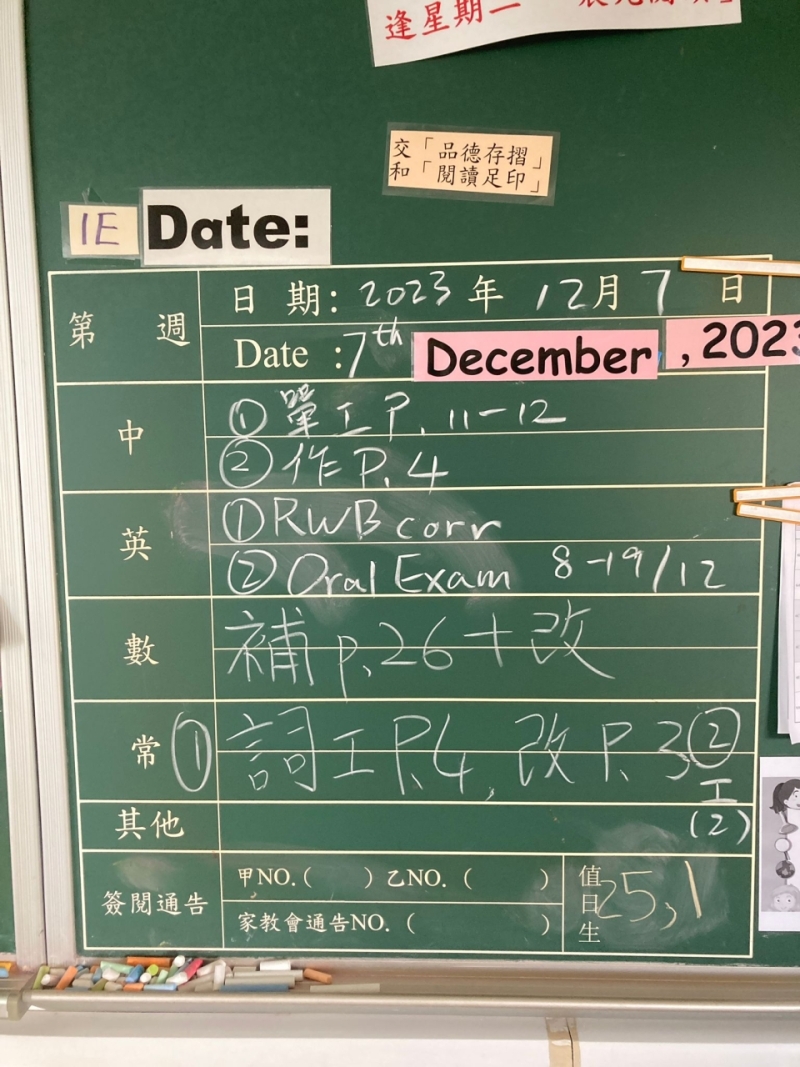 逢星期二
交「品德存摺」
和「閱讀足印」
1E Date:
第 週
日 期: 2023 年 12月 7 日
Date :7th December, 2023
中
① 單工 P. 11-12
② 作 P.4
英
① RWB corr
② Oral Exam 8-19/12
數
補 p.26+改
常
① 詞工 P.4, 改 P.3 ②
工
(2)
其他
簽閱通告
甲NO.( ) 乙NO. ( )
家教會通告NO. ( )
值日生
25,1